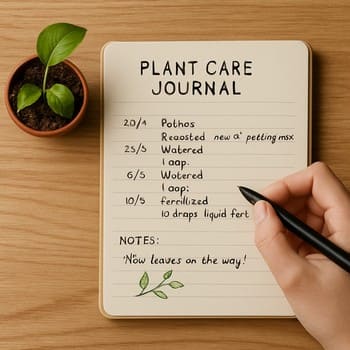 PLANT CARE
JOURNAL
20/4 Pothos
Reposted new a' petting msx
25/5 Watered
1 aap.
6/5 Watered
1 aap:
10/5 ferrilized
10 draps liquid fert
NOTES:
'Now leaves on the way!